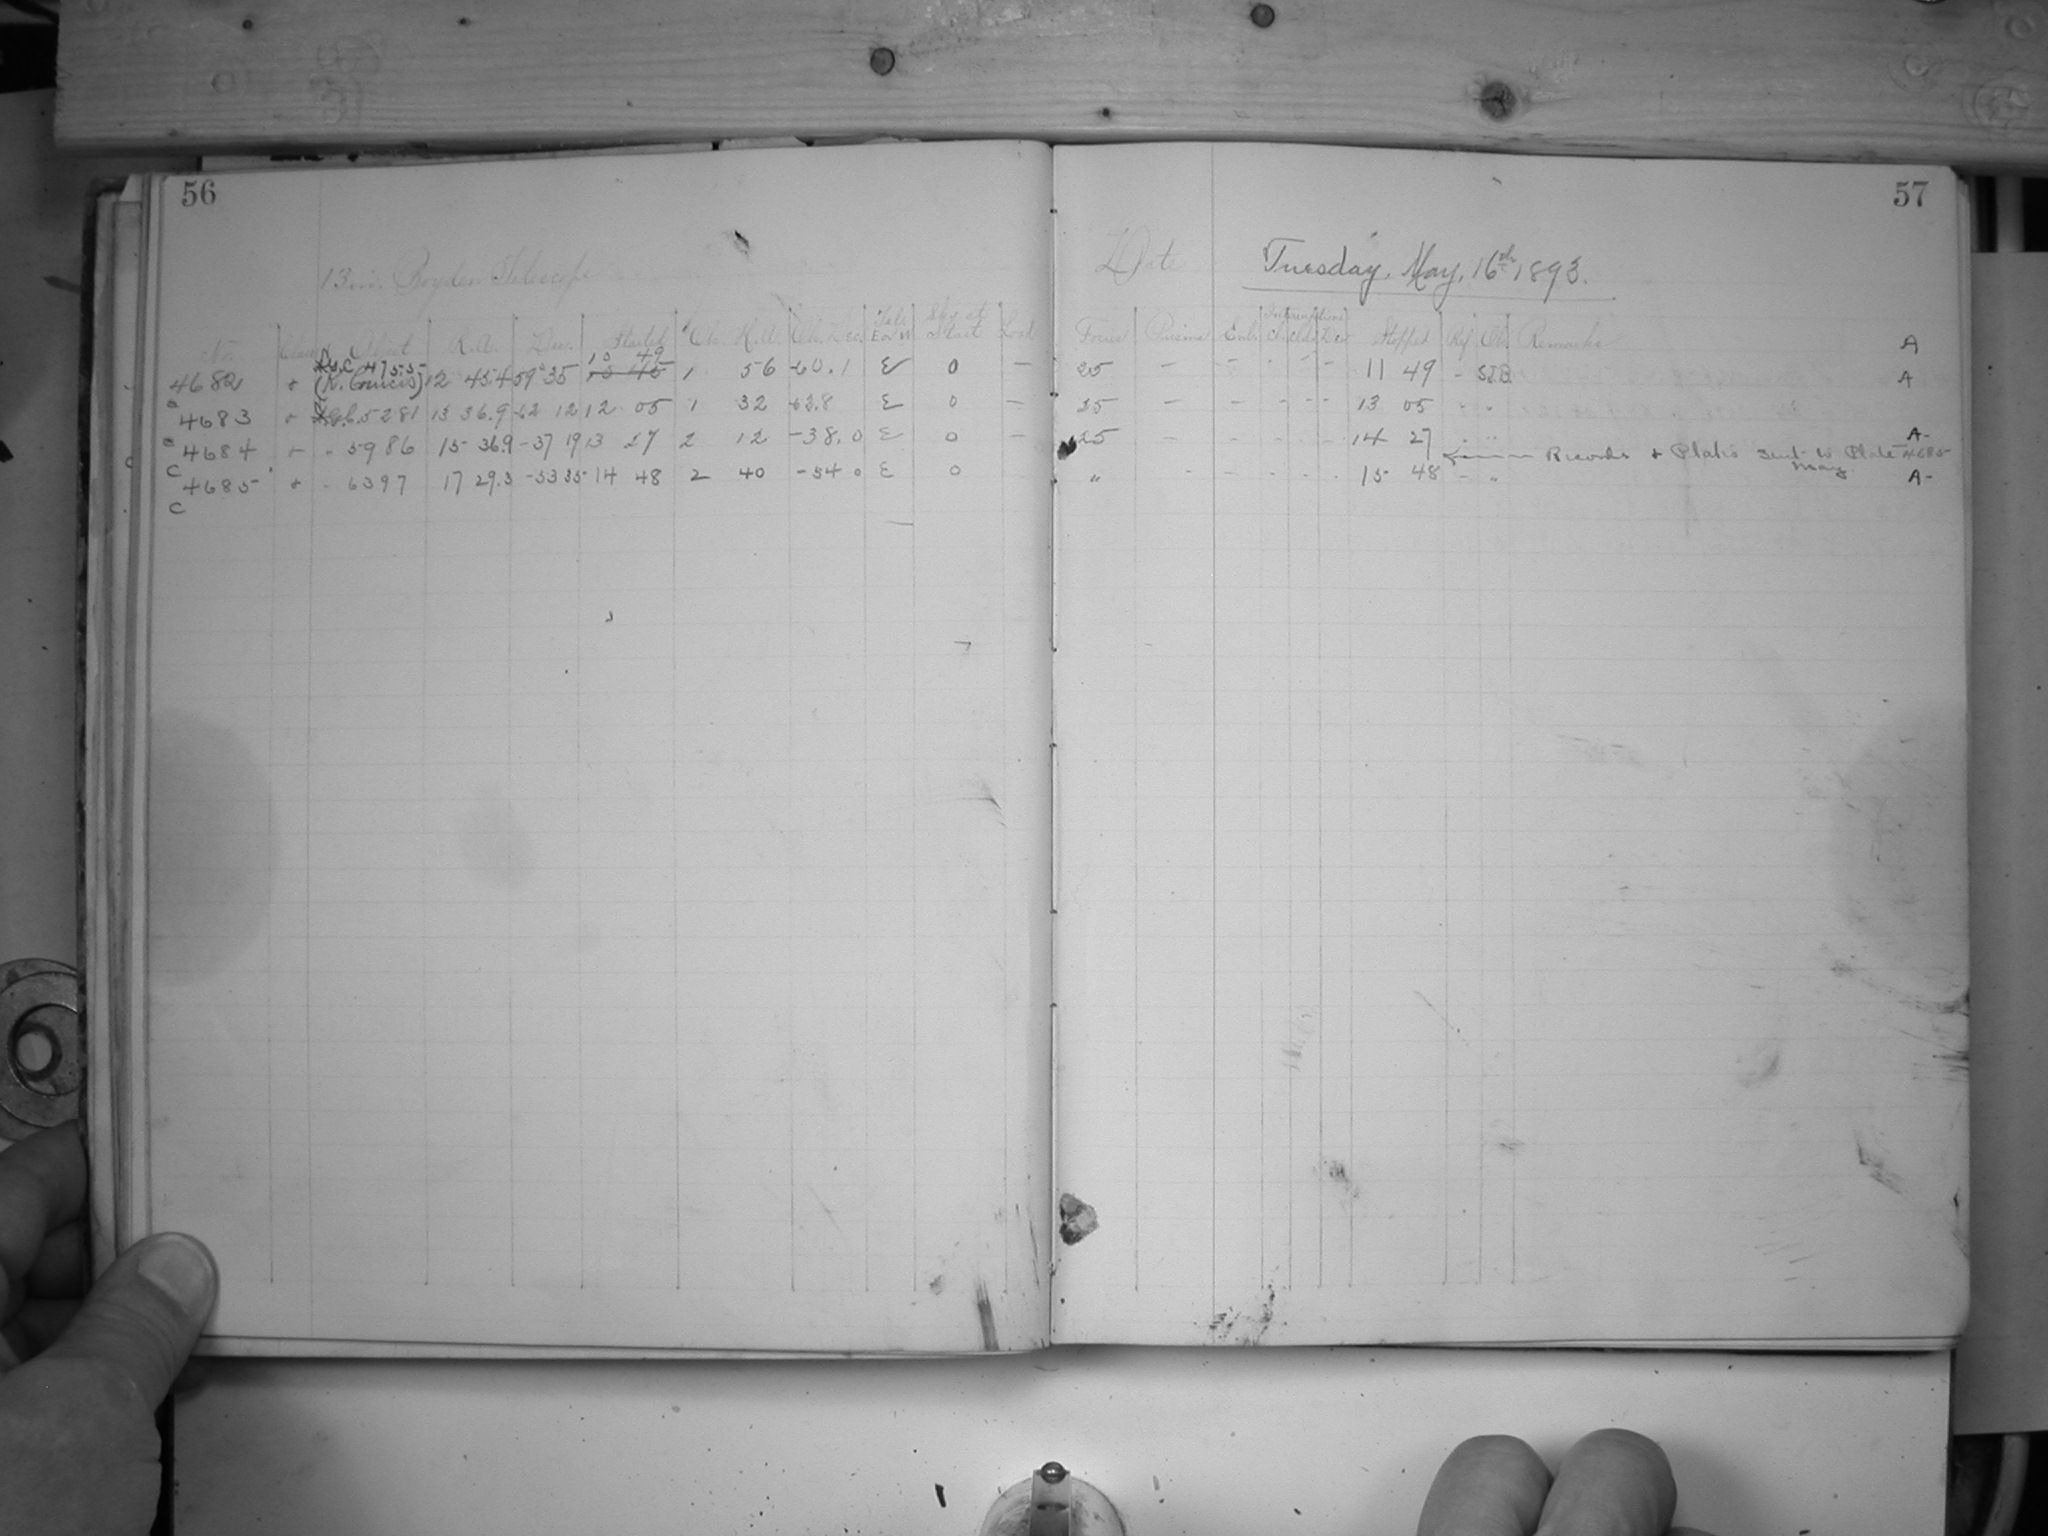 56
57
13 in. Boyden Telescope
Date Tuesday, May, 16th 1893.
No. Class Object R.A. Dec. Started Ob. H.A. Ob. Dec. Tel. E or W Sky at Start
Focus Prisms Interruptions Stopped Ref Remarks
4682 (K. Crucis) 12 45.4 59° 35 10 49 1 56 -60.1 E 0 —
25 - - - - - - 11 49 - A
4683 5281 13 36.9 -62 12 12 05 1 32 -62.8 E 0 —
25 - - - - - - 13 05 - " A
4684 " 5986 15 36.9 -37 19 13 27 2 12 -38.0 E 0 —
25 - - - - - - 14 27 - " A-
Records + Plates sent to Plate 4685
May
c 4685 - 6397 17 29.3 -53 35 14 48 2 40 -54 0 E 0
" - - - - - 15 48 - " A-
c